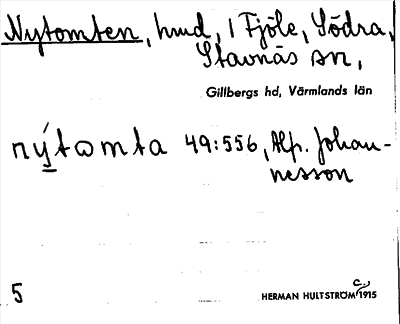 Nytomten, hmd, i Fjöle, Södra,
Stavnäs sn,
Gillbergs hd, Värmlands län
nýtomta 49:556, Alf. Johan-
nesson
5
HERMAN HULTSTRÖM c. 1915